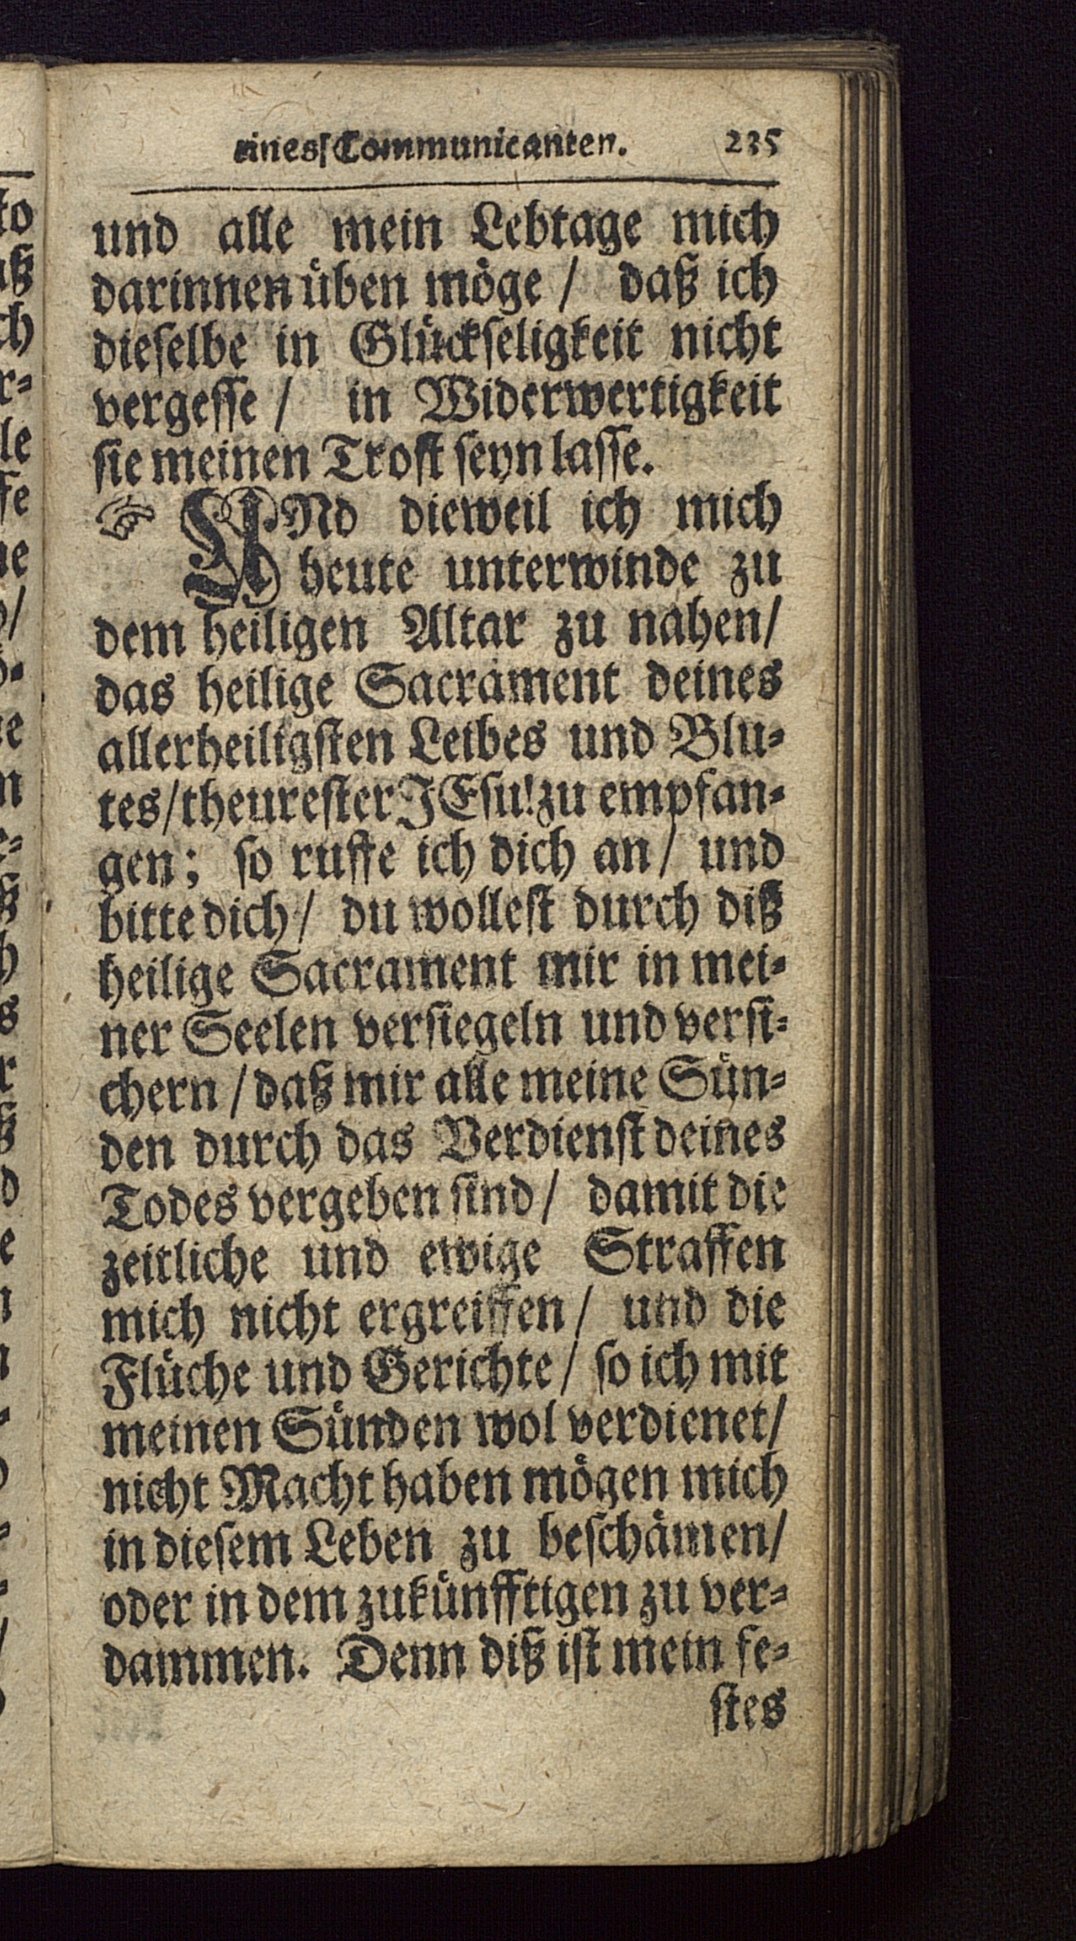 eines Communicanten. 235
und alle mein Lebtage mich
darinnen üben möge / daß ich
dieselbe in Glückseligkeit nicht
vergesse / in Widerwertigkeit
sie meinen Trost seyn lasse.
☞ UNd dieweil ich mich
heute unterwinde zu
dem heiligen Altar zu nahen/
das heilige Sacrament deines
allerheiligsten Leibes und Blu-
tes/theurester JEsu!zu empfan-
gen; so ruffe ich dich an/ und
bitte dich/ du wollest durch diß
heilige Sacrament mir in mei-
ner Seelen versiegeln und versi-
chern / daß mir alle meine Sün-
den durch das Verdienst deines
Todes vergeben sind/ damit die
zeitliche und ewige Straffen
mich nicht ergreiffen/ und die
Flüche und Gerichte/ so ich mit
meinen Sünden wol verdienet/
nicht Macht haben mögen mich
in diesem Leben zu beschämen/
oder in dem zukünfftigen zu ver-
dammen. Denn diß ist mein fe-
stes